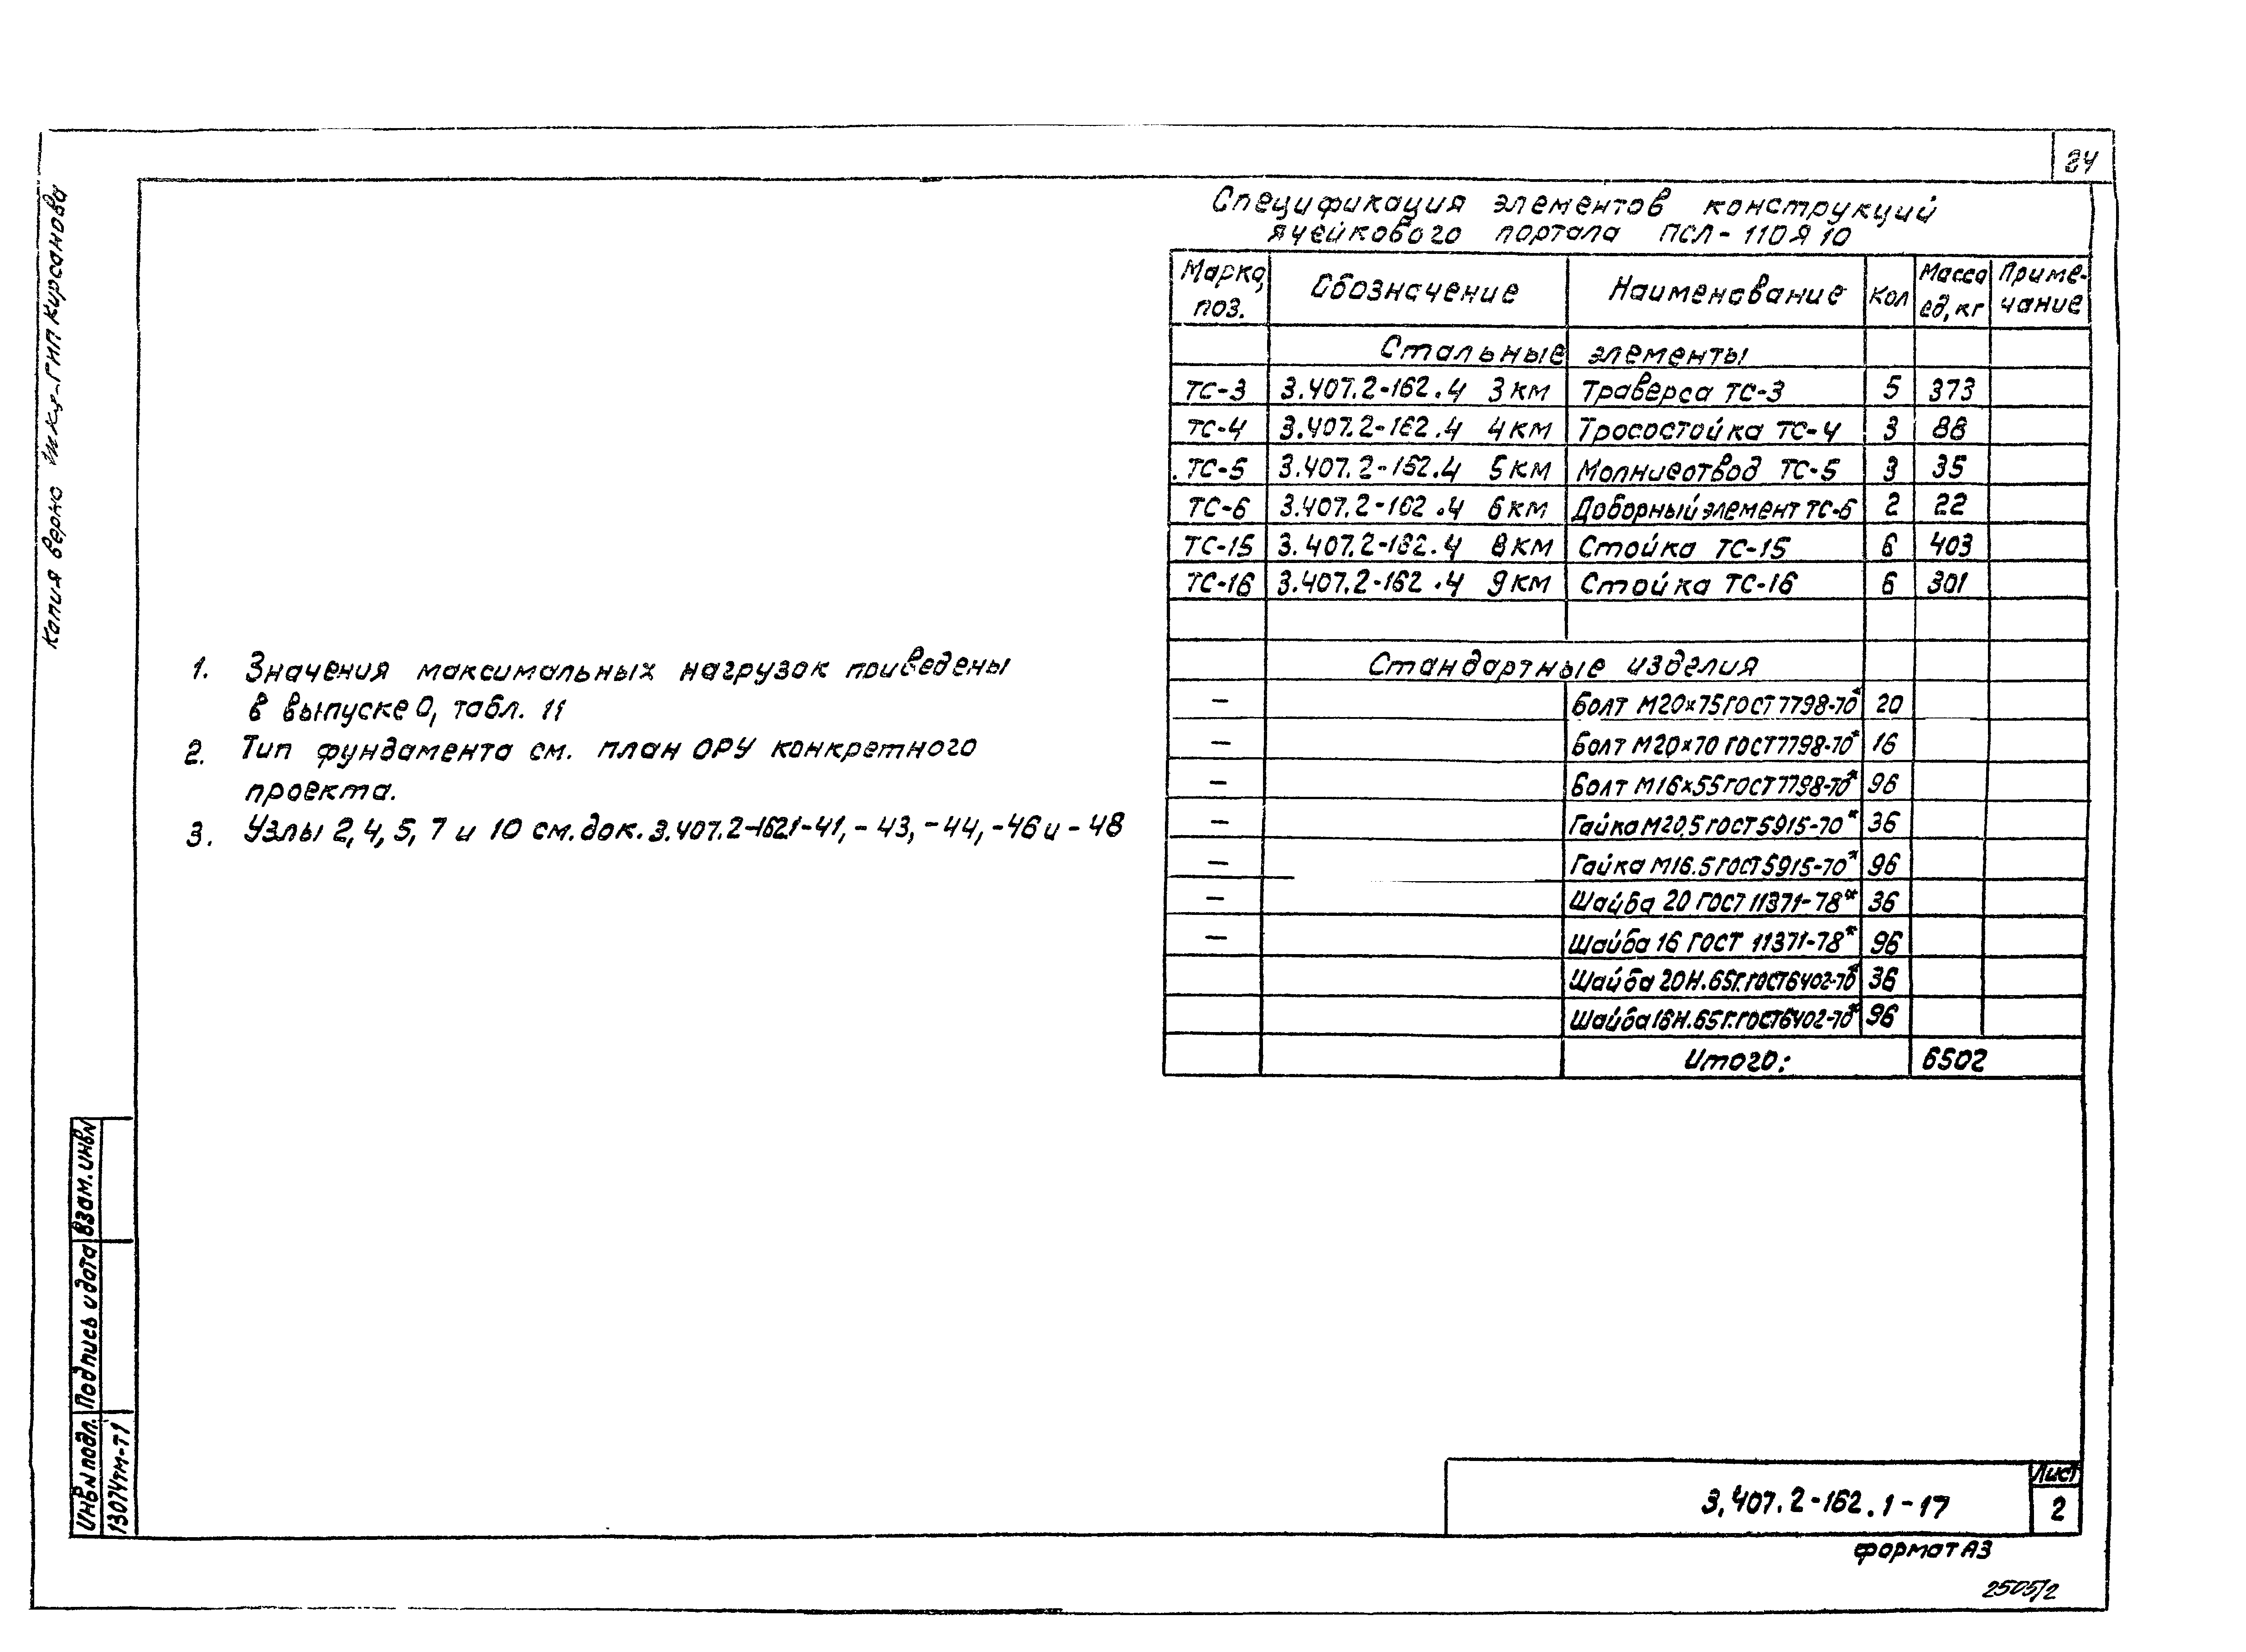 34
Спецификация элементов конструкций
ячейкового портала ПСЛ-110Я10
Марка, поз. Обозначение Наименование Кол Масса ед, кг Приме-чание
Стальные элементы
ТС-3 3.407.2-162.4 3КМ Траверса ТС-3 5 373
ТС-4 3.407.2-162.4 4КМ Тросостойка ТС-4 3 88
ТС-5 3.407.2-162.4 5КМ Молниеотвод ТС-5 3 35
ТС-6 3.407.2-162.4 6КМ Доборный элемент ТС-6 2 22
ТС-15 3.407.2-162.4 8КМ Стойка ТС-15 6 403
ТС-16 3.407.2-162.4 9КМ Стойка ТС-16 6 301
Стандартные изделия
— Болт М20×75 ГОСТ 7798-70* 20
— Болт М20×70 ГОСТ 7798-70* 16
— Болт М16×55 ГОСТ 7798-70* 96
— Гайка М20.5 ГОСТ 5915-70* 36
— Гайка М16.5 ГОСТ 5915-70* 96
— Шайба 20 ГОСТ 11371-78* 36
— Шайба 16 ГОСТ 11371-78* 96
Шайба 20Н.65Г.ГОСТ 6402-70* 36
Шайба 16Н.65Г.ГОСТ 6402-70* 96
Итого: 6502
1. Значения максимальных нагрузок приведены
в выпуске 0, табл. 11
2. Тип фундамента см. план ОРУ конкретного
проекта.
3. Узлы 2, 4, 5, 7 и 10 см. док. 3.407.2-162.1-41, -43, -44, -46 и -48
Копия верна ГИП Кирсанова
Взам. инв №
Подпись и дата
Инв № подл.
13074тм-Т1
3.407.2-162.1-17
Лист
2
формат А3
2505/2